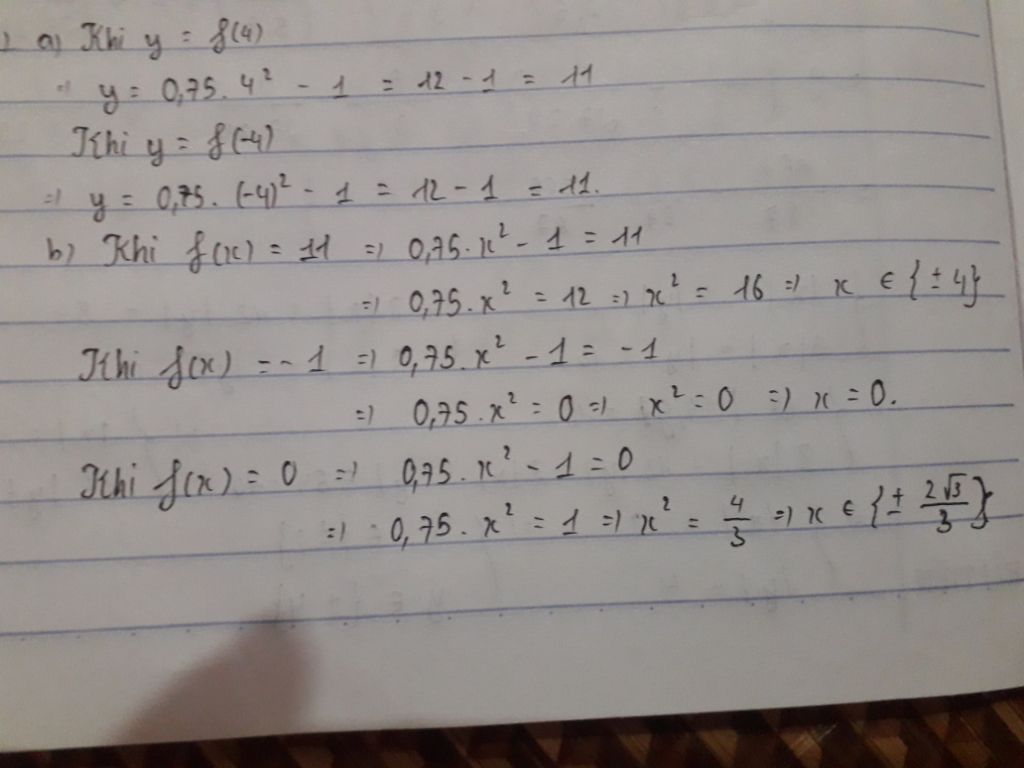 ) a) Khi y = f(4)
=> y = 0,75. 4² - 1 = 12 - 1 = 11
Khi y = f(-4)
=> y = 0,75. (-4)² - 1 = 12 - 1 = 11.
b) Khi f(x) = 11 => 0,75. x² - 1 = 11
=> 0,75. x² = 12 => x² = 16 => x ∈ {± 4}
Khi f(x) = - 1 => 0,75. x² - 1 = -1
=> 0,75. x² = 0 => x² = 0 => x = 0.
Khi f(x) = 0 => 0,75. x² - 1 = 0
=> 0,75. x² = 1 => x² = 4/3 => x ∈ {± 2√3/3}